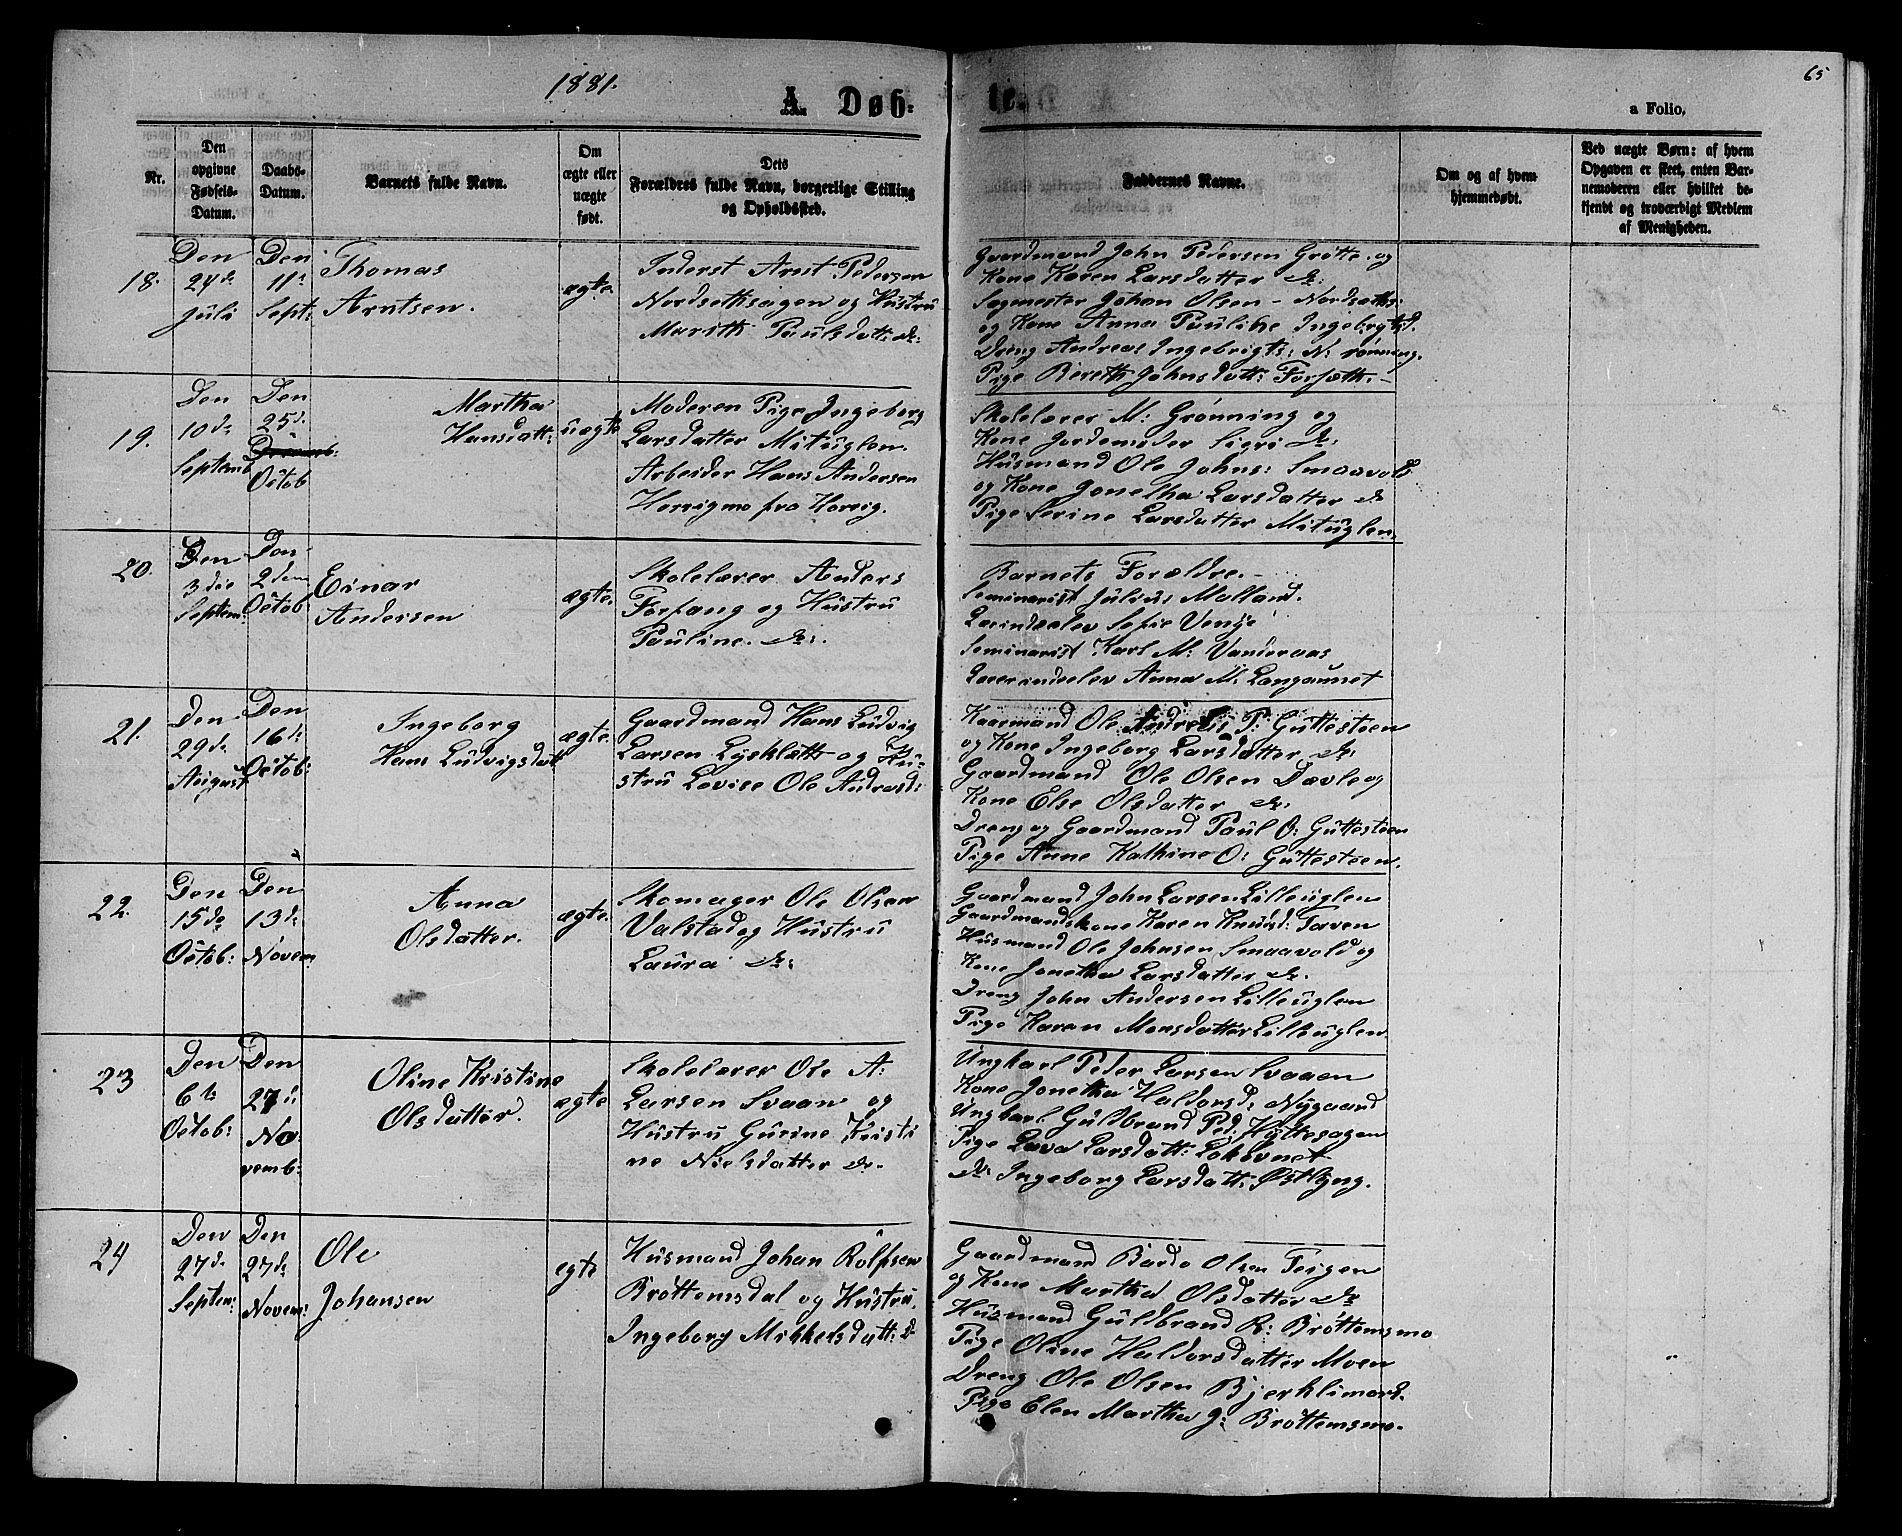 1881.
A. Døb-
te.
65
a Folio,
Nr.
Den opgivne Fødsels-Datum.
Daabs-Datum.
Barnets fulde Navn.
Om ægte eller uægte født.
Dets Forældres fulde Navn, borgerlige Stilling og Opholdssted.
Faddernes Navne.
Om og af hvem hjemmedøbt.
Ved uægte Børn: af hvem Opgaven er skeet, enten Bar-nemoderen eller hvilket be-kjendt og troværdigt Medlem af Menigheden.
18.
Den
24de
Juli
Den
11te
Sept:
Thomas
Arntsen.
ægte.
Inderst Arnt Pedersen
Nordsethsagen og Hustru
Marith Paulsdatt: do:
Gaardmand John Pedersen Grøtte og
Kone Karen Larsdatter do:
Sagmester Johan Olsen - Nordseths:
og Kone Anna Pauline Ingebrgtsd.
Dreng Andreas Ingebrigts: N: rønning.
Pige Bereth Johnsdatt: Forsæth.-
19.
Den
10de
Septemb
Den
25de
Octob
Martha
Hansdatt:
uægte
Moderen Pige Ingeborg
Larsdatter Mituglen.
Arbeider Hans Andersen
Horrigmo fra Horrig.
Skolelærer M: Grønning og
Kone Jordemoder Sigri do:
Husmand Ole Johns: Smaavold
og Kone Jonetha Larsdatter do
Pige Serine Larsdatter Mituglen.
20.
Den
3die
Septem:
Den
2den
Octob
Einar
Andersen
ægte.
Skolelærer Anders
Forfang og Hustru
Pauline. do:
Barnets Forældre.-
Seminarist Julius Molland.
Lærindeelev Sofie Venjе
Seminarist Karl M: Vanderaas
Lærerindeelev Anna M: Langaunet
21.
Den
29de
August
Den
16de
Octob:
Ingeborg
Hans Ludvigsdatt
ægte.
Gaardmand Hans Ludvig
Larsen Lysklætt og Hu-
stru Lovise Ole Andreasd:
Kaarmand Ole Andreas P: Guttesteen
og Kone Ingeborg Larsdatter do:
Gaardmand Ole Olsen Dævle og
Kone Else Olsdatter do:
Dreng og Gaardmand Paul O: Guttesteen
Pige Anne Kathine O: Guttesteen.
22.
Den
15de
Octob:
Den
13de
Novem:
Anna
Olsdatter.
ægte.
Skomager Ole Olsen
Valstad og Hustru
Laura do:
Gaardmand John Larsen Lilleuglen
Gaardmandskone Karen Knudsd: Torven
Husmand Ole Johnsen Smaavold og
Kone Jonetha Larsdatter do.
Dreng John Andersen Lilleuglen
Pige Karen Monsdatter Lilleuglen.
23
Den
6te
Octob:
Den
27de
No
vemb:
Oline Kristine
Olsdatter.
ægte
Skolelærer Ole A:
Larsen Svaan og
Hustru Gurine Kristi
ne Nielsdatter do.
Ungkarl Peder Larsen Svaaen
Kone Jonetha Haldorsd: Nygaard
Ungkarl Guldbrand Ped: Hyttesagen
Pige Lava Larsdatt: Lokövnet
do Ingeborg Larsdatt: Østlyng.
24
Den
27de
Septem:
Den
27de
Novem:
Ole
Johansen
egte
Husmand Johan Rolfsen
Brottemsdal og Hustru.
Ingeborg Mikkelsdatt: do
Gaardmand Bardo Olsen Teigen
og Kone Martha Olsdatter do
Husmand Guldbrand R: Brottemsmo
Pige Oline Haldorsdatter Moen
Dreng Ole Olsen Bjerklimark.
Pige Elen Martha J: Brottemsmo.